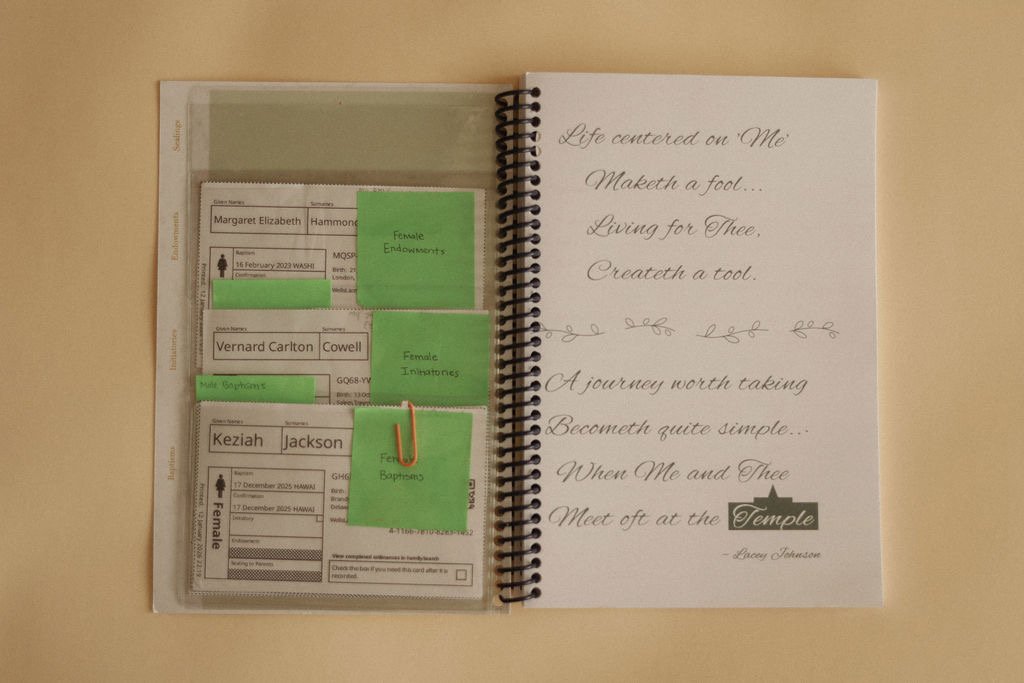 Sealings
Endowments
Initiatories
Baptisms
Given Names
Surnames
Margaret Elizabeth
Baptism
16 February 2023 WASHI
Confirmation
MQSP
Birth: 21
London,
Female
Endowments
Given Names
Surnames
Vernard Carlton
Cowell
GQ68-YW
Birth: 13 Oct
Male Baptisms
Female
Initiatories
Given Names
Surnames
Keziah
Jackson
Baptism
17 December 2025 HAWAI
Confirmation
17 December 2025 HAWAI
Initiatory
Endowment
Sealing to Parents
Female
Printed: 12 January 2026 22:19
GH6
Birth:
Baptisms
View completed ordinances in FamilySearch
Check the box if you need this card after it is
recorded.
Life centered on 'Me'
Maketh a fool...
Living for Thee,
Createth a tool.
A journey worth taking
Becometh quite simple...
When Me and Thee
Meet oft at the Temple
- Lacey Johnson